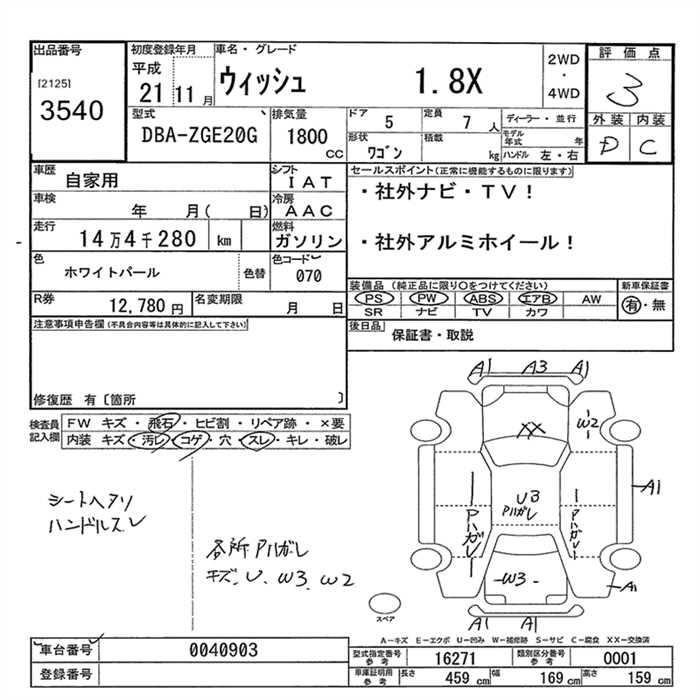 出品番号
[2125]
3540
初度登録年月
平成
21 11 月
車名・グレード
ウィッシュ 1.8X
2WD
・
4WD
評価点
3
外装 内装
D C
型式
DBA-ZGE20G
排気量
1800
CC
ドア 5
定員 7 人
形状 ワゴン
積載 kg
ディーラー・並行
モデル年式 年
ハンドル 左・右
車歴 自家用
シフト IAT
車検 年 月( 日)
冷房 AAC
走行 14万4千280 km
燃料 ガソリン
色 ホワイトパール 色替
色コード 070
R券 12,780円
名変期限 月 日
セールスポイント(正常に機能するものに限ります)
・社外ナビ・TV!
・社外アルミホイール!
装備品 (純正品に限り〇をつけてください)
PS PW ABS エアB AW
SR ナビ TV カワ
新車保証書
有・無
後日品 保証書・取説
注意事項申告欄(不具合内容等は具体的に記入して下さい)
修復歴 有〔箇所 〕
検査員記入欄
FW キズ・飛石・ヒビ割・リペア跡・×要
内装 キズ・汚レ・コゲ・穴・スレ・キレ・破レ
シートヘタリ
ハンドルスレ
各所Pハガレ
キズ、U、W3、W2
A1 A3 A1
XX
W2
U3
Pハガレ
Pハガレ
Pハガレ
A1
W3
A1
A1 A1
スペア
A-キズ E-エクボ U-凹み W-補修跡 S-サビ C-腐食 XX-交換済
車台番号 0040903
登録番号
型式指定番号参考 16271
類別区分番号参考 0001
車庫証明用参考 長さ 459 cm 幅 169 cm 高さ 159 cm